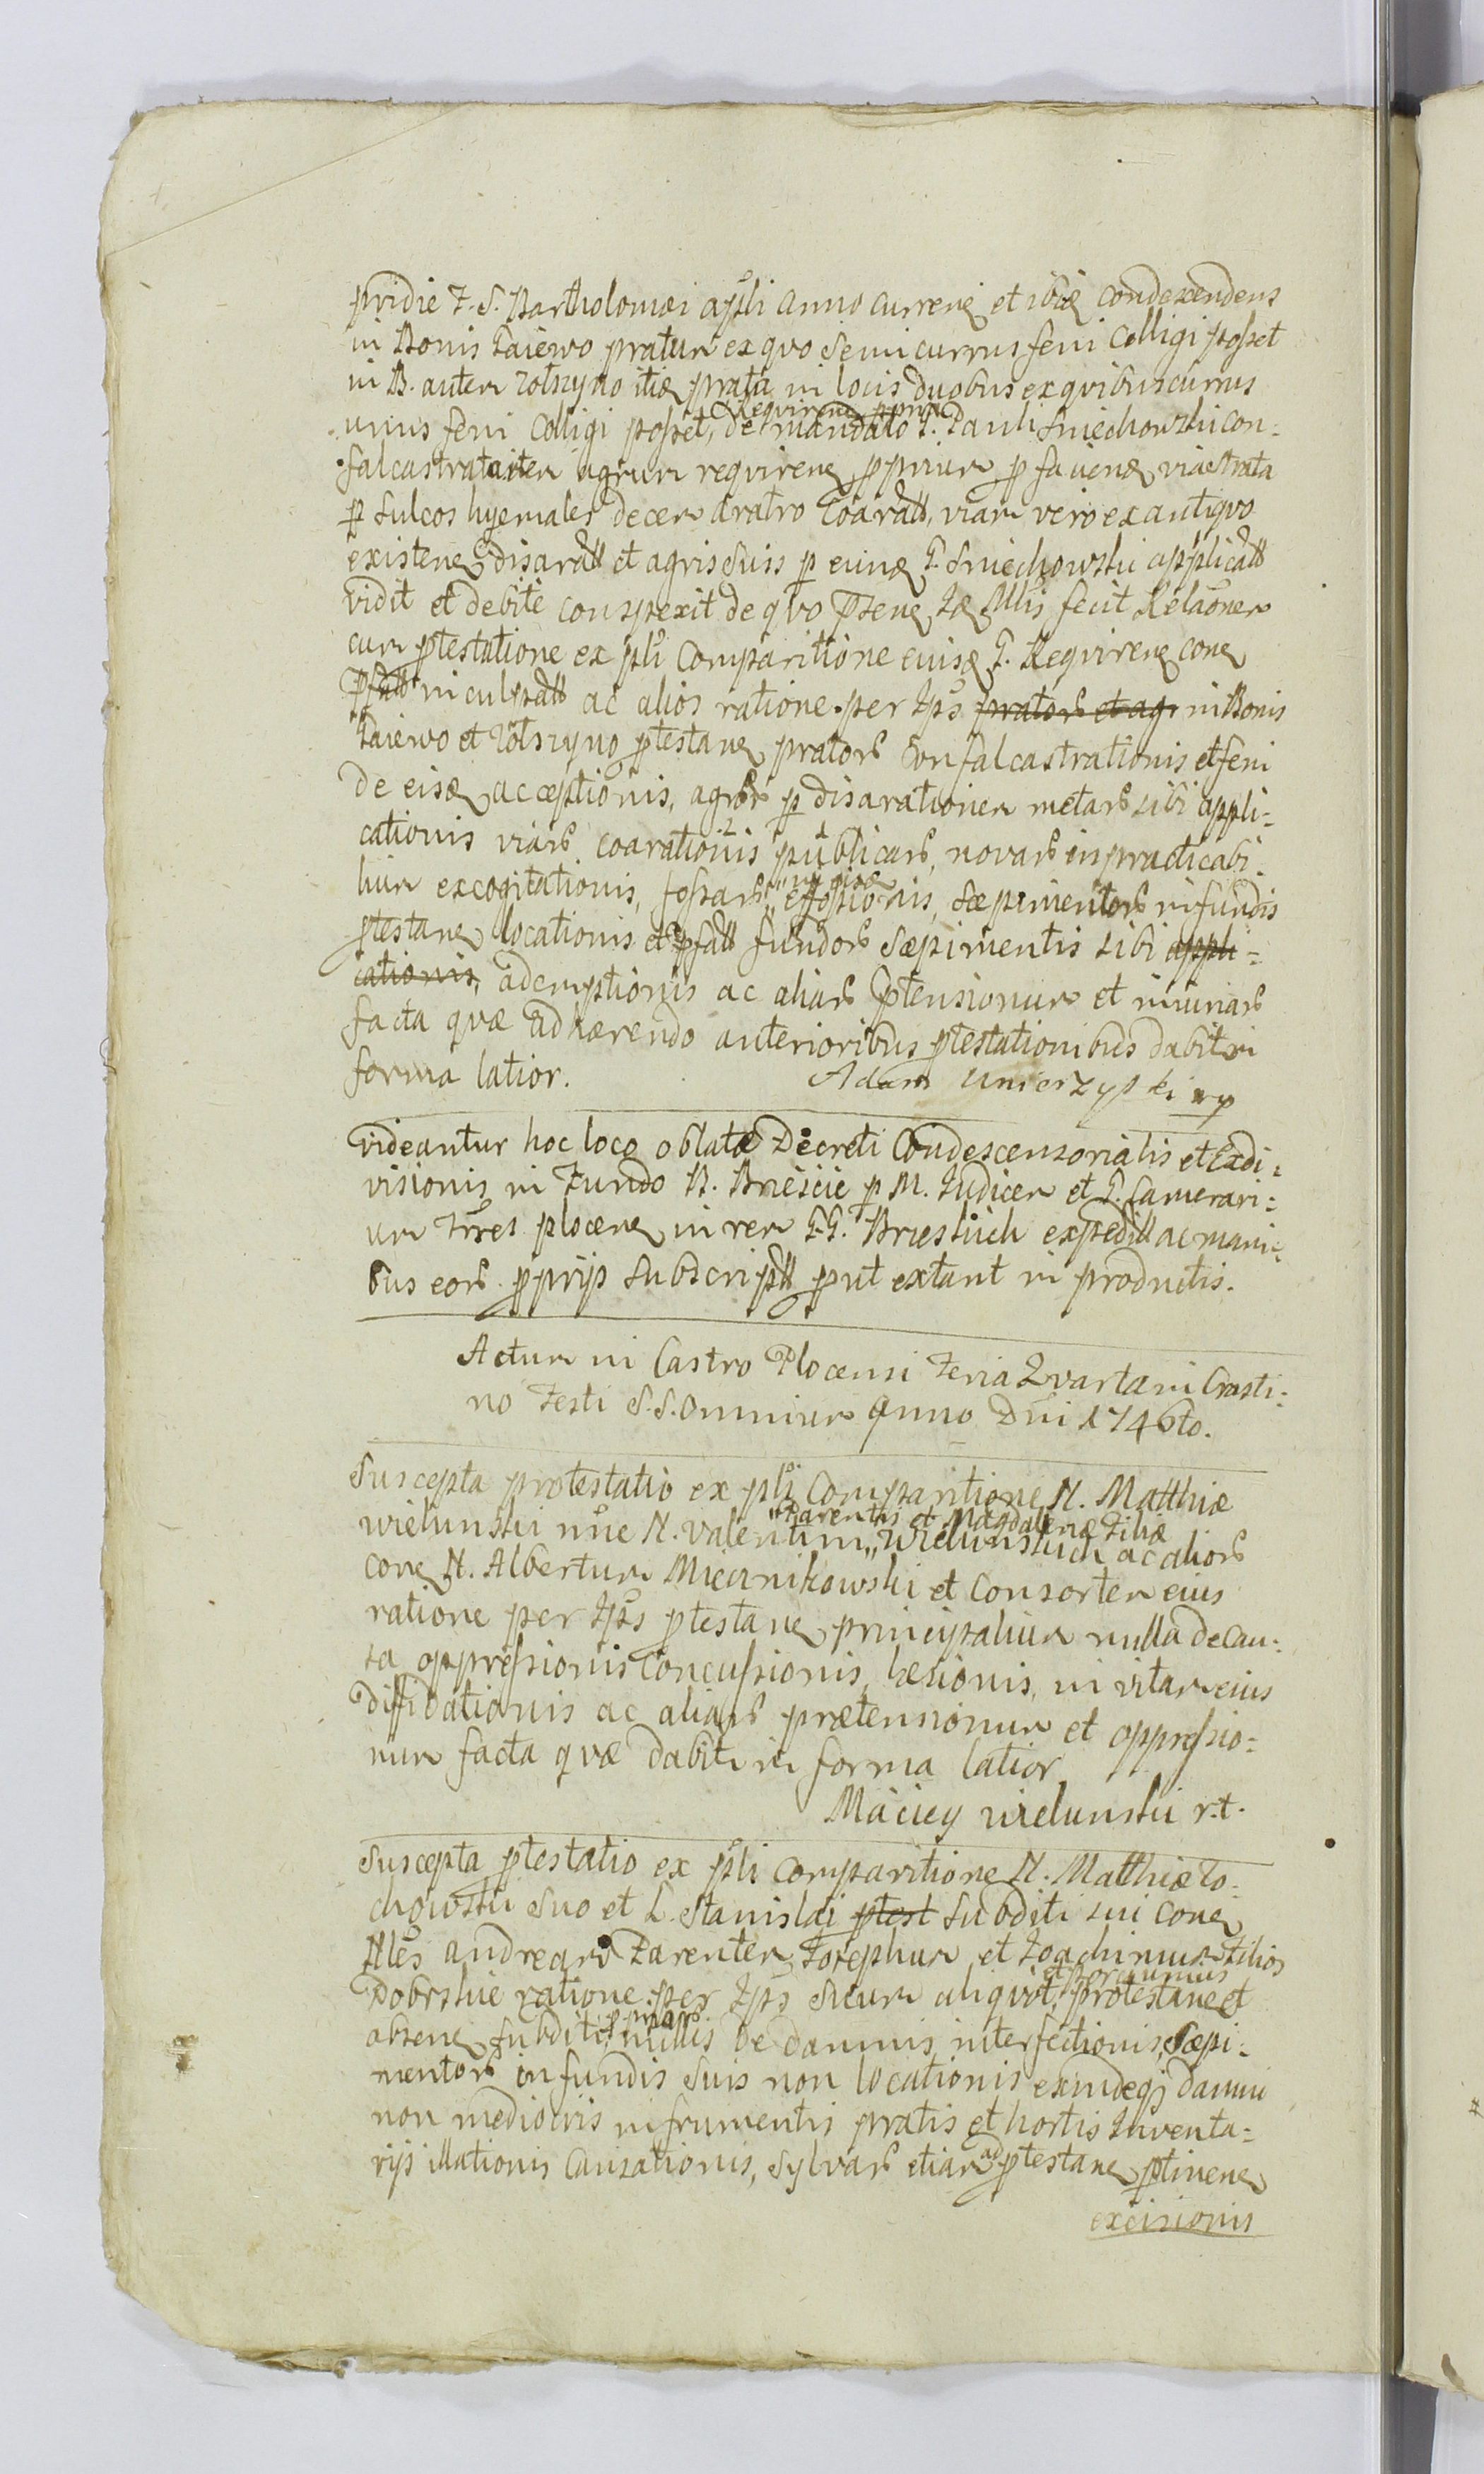 pridie F. S. Bartholomæi apłi anno curreñ et ibiđ condexendens
in Bonis Gaiewo pratum ex quo semicurrus feni colligi posset
in B. autem Rotszyno itiđ prata in locis duobus ex quibus currus
unius feni colligi posset, de mandato G. Pauli Smiechowski con=
Requireñ ppria
falcastrata item agrum requireñ pprium p faciend viæ strata
p sulcos hyemales decem aratro coaratt, viam vero ex antiquo
existeñ disaratt et agris suis p eund G. Smiechowski applicatt
vidit et debite conspexit de quo pseñ Id Mlis fecit Relãonem
cum ptestatione ex psłi comparitione eiusd G. Requireñ con
pfatt inculpatt ac alios ratione per Ips prator et agr in Bonis
Gaiewo et Rotszyno ptestañ prator confalcastrationis et feni
de eisd acceptionis, agror p disarationem metar sibi appli=
cationis viar coarationis publicar, novar inpracticabi
lium excogitationis, fossar effossionis, sæpimentor in fundis
in eisd
ptestañ locationis et pfatt fundor sæpimentis sibi appli=
cationis, ademptionis ac aliar ptensionum et iniuriar
facta quæ adhærendo anterioribus ptestationibus dabitr in
forma latior. Adam Umierzyski mp
videantur hoc loco oblatæ Decreti Condescensorialis et Exdi=
visionis in Fundo B. Brieście p M. Judicem et G. Camerari=
um Trres ploceñ in rem G.G. Brieskich expeditt ac mani=
bus eor pprijs subscriptt put extant in productis.
Actum in Castro Plocensi Feria Quarta in Crasti=
no Festi S.S. Omnium Anno Dni 1746to.
Suscepta protestatio ex psłi Comparitione N. Matthiæ
Wielunski nñe N. Valentini Wielunskich ac alior
Parentis et Magdalenæ Filiæ
con N. Albertum Miecznikowski et Consortem eius
ratione per Ips ptestañ principalium nulla de cau=
sa oppressionis concussionis, læsionis, in vitam eius
diffidationis ac aliar prætensionum et oppressio=
num facta quæ dabitr in forma latior
Maciey Wielunski r.t.
Suscepta ptestatio ex psłi comparitione N. Matthiæ Zo=
chowski suo et L. Stanislai ptest subditi sui con
Mles Andream Parentem Josephum et Joachimum Filios
Dobrskie ratione per Ips suum aliquot, protestañ et
et porcum unius
abseñ subditi, nullis de damnis, interfectionis, sæpi=
ppriar
mentor in fundis suis non locationis exindeqz damni
non mediocris in frumentis pratis et hortis Inventa=
rijs illationis causationis, sylvar etiam ad ptestañ ptineñ
excisionis